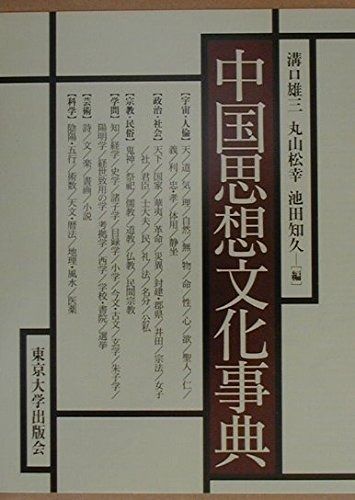 溝口雄三 丸山松幸 池田知久―[編]
中国思想文化事典
【宇宙・人倫】天/道/気/理/自然/無/物/命/性/心/欲/聖人/仁/
義/利/忠/孝/体用/静坐
【政治・社会】天下/国家/華夷/革命/災異/封建・郡県/井田/宗法/女子
/社/君臣/士大夫/民/礼/法/名分/公私
【宗教・民俗】鬼神/祭祀/儒教/道教/仏教/民間宗教
【学問】知/経学/史学/諸子学/目録学/小学/今文・古文/玄学/朱子学/
陽明学/経世致用の学/考拠学/西学/学校・書院/選挙
【芸術】詩/文/楽/書画/小説
【科学】陰陽・五行/術数/天文・暦法/地理・風水/医薬
東京大学出版会